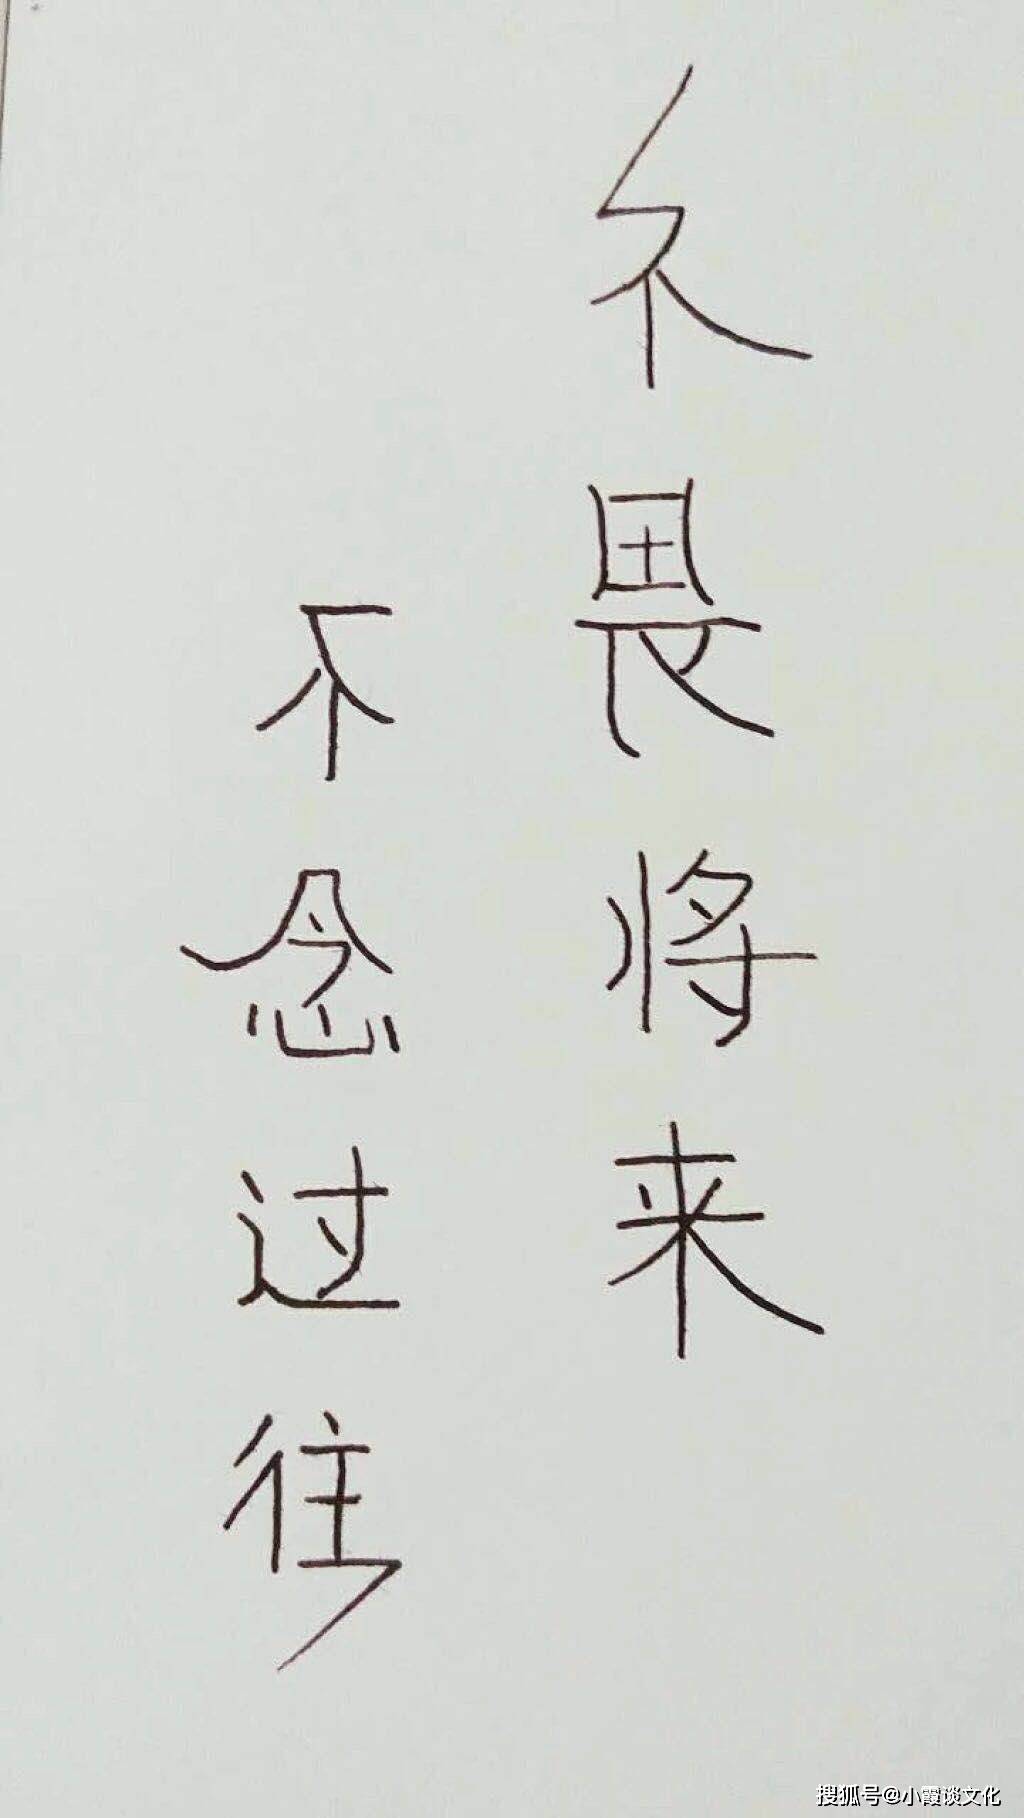 不畏将来
不念过往
搜狐号@小霞谈文化